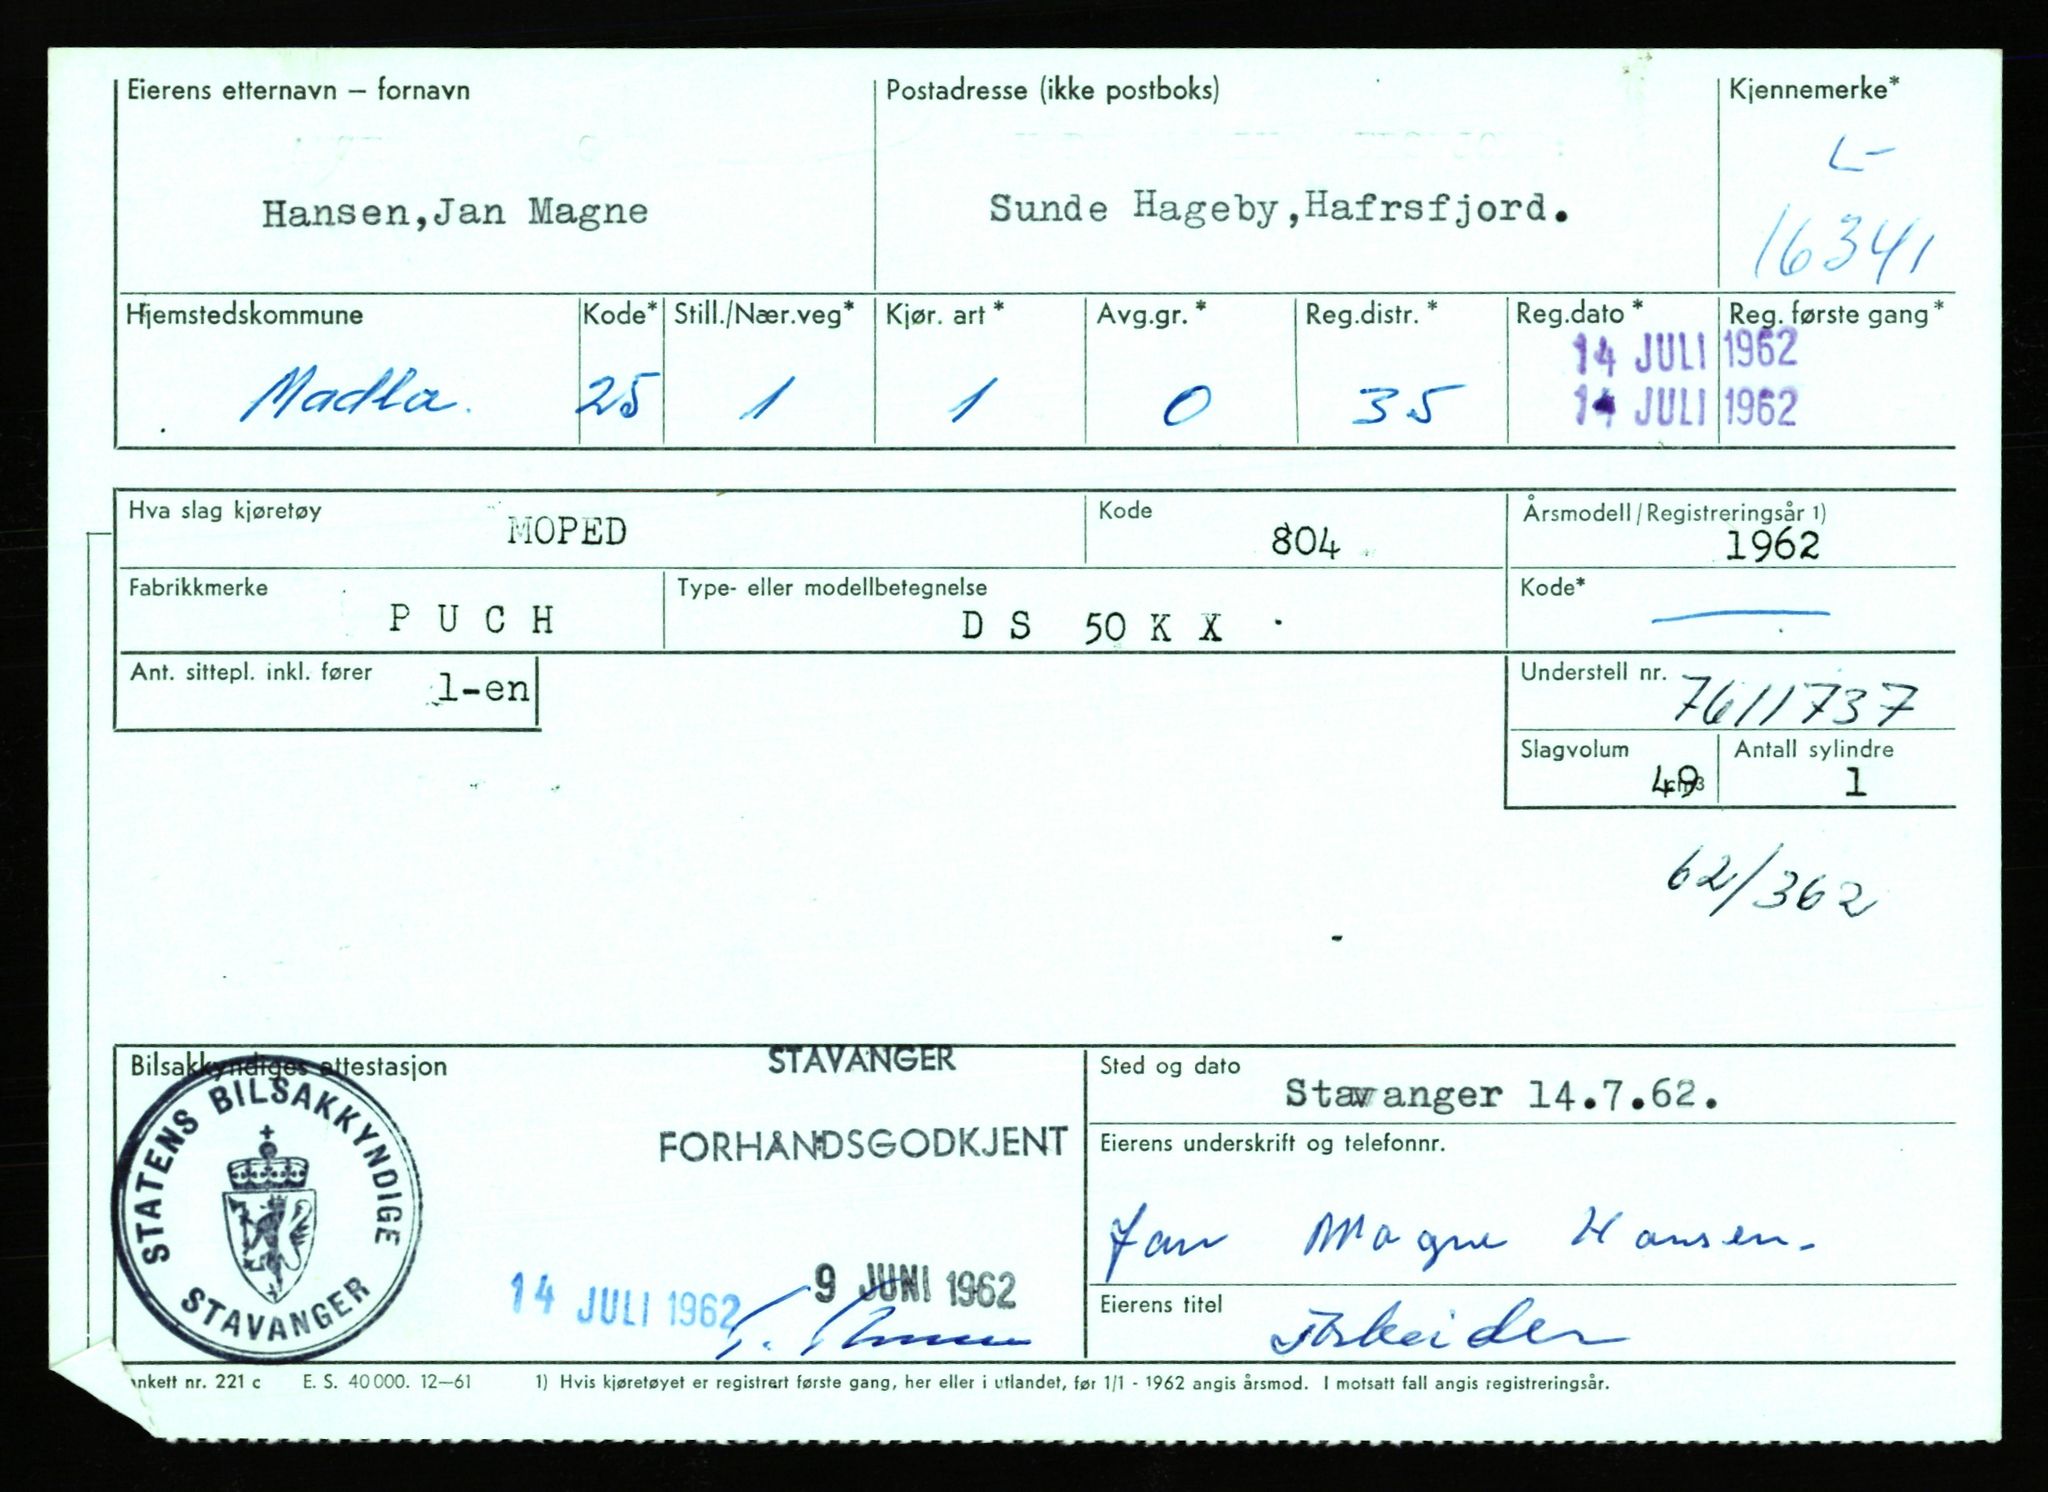 Eierens etternavn – fornavn
Postadresse (ikke postboks)
Kjennemerke*
L-
16341
Hansen,Jan Magne
Sunde Hageby,Hafrsfjord.
Hjemstedskommune
Kode*
Still./Nær.veg*
Kjør. art *
Avg.gr. *
Reg.distr. *
Reg.dato *
Reg. første gang *
Madla.
25
1
1
0
35
14 JULI 1962
14 JULI 1962
Hva slag kjøretøy
MOPED
Kode
804
Årsmodell/Registreringsår 1)
1962
Fabrikkmerke
P U C H
Type- eller modellbetegnelse
D S 50 K X
Kode*
Ant. sittepl. inkl. fører
1-en
Understell nr.
7611737
Slagvolum
49 cm3
Antall sylindre
1
62/362
Bilsakkyndiges attestasjon
STATENS BILSAKKYNDIGE
STAVANGER
STAVANGER
FORHANDSGODKJENT
14 JULI 1962
9 JUNI 1962
Sted og dato
Stavanger 14.7.62.
Eierens underskrift og telefonnr.
Jan Magne Hansen.
Eierens titel
Arbeider
nkett nr. 221 c
E. S. 40 000. 12–61
1) Hvis kjøretøyet er registrert første gang, her eller i utlandet, før 1/1 - 1962 angis årsmod. I motsatt fall angis registreringsår.